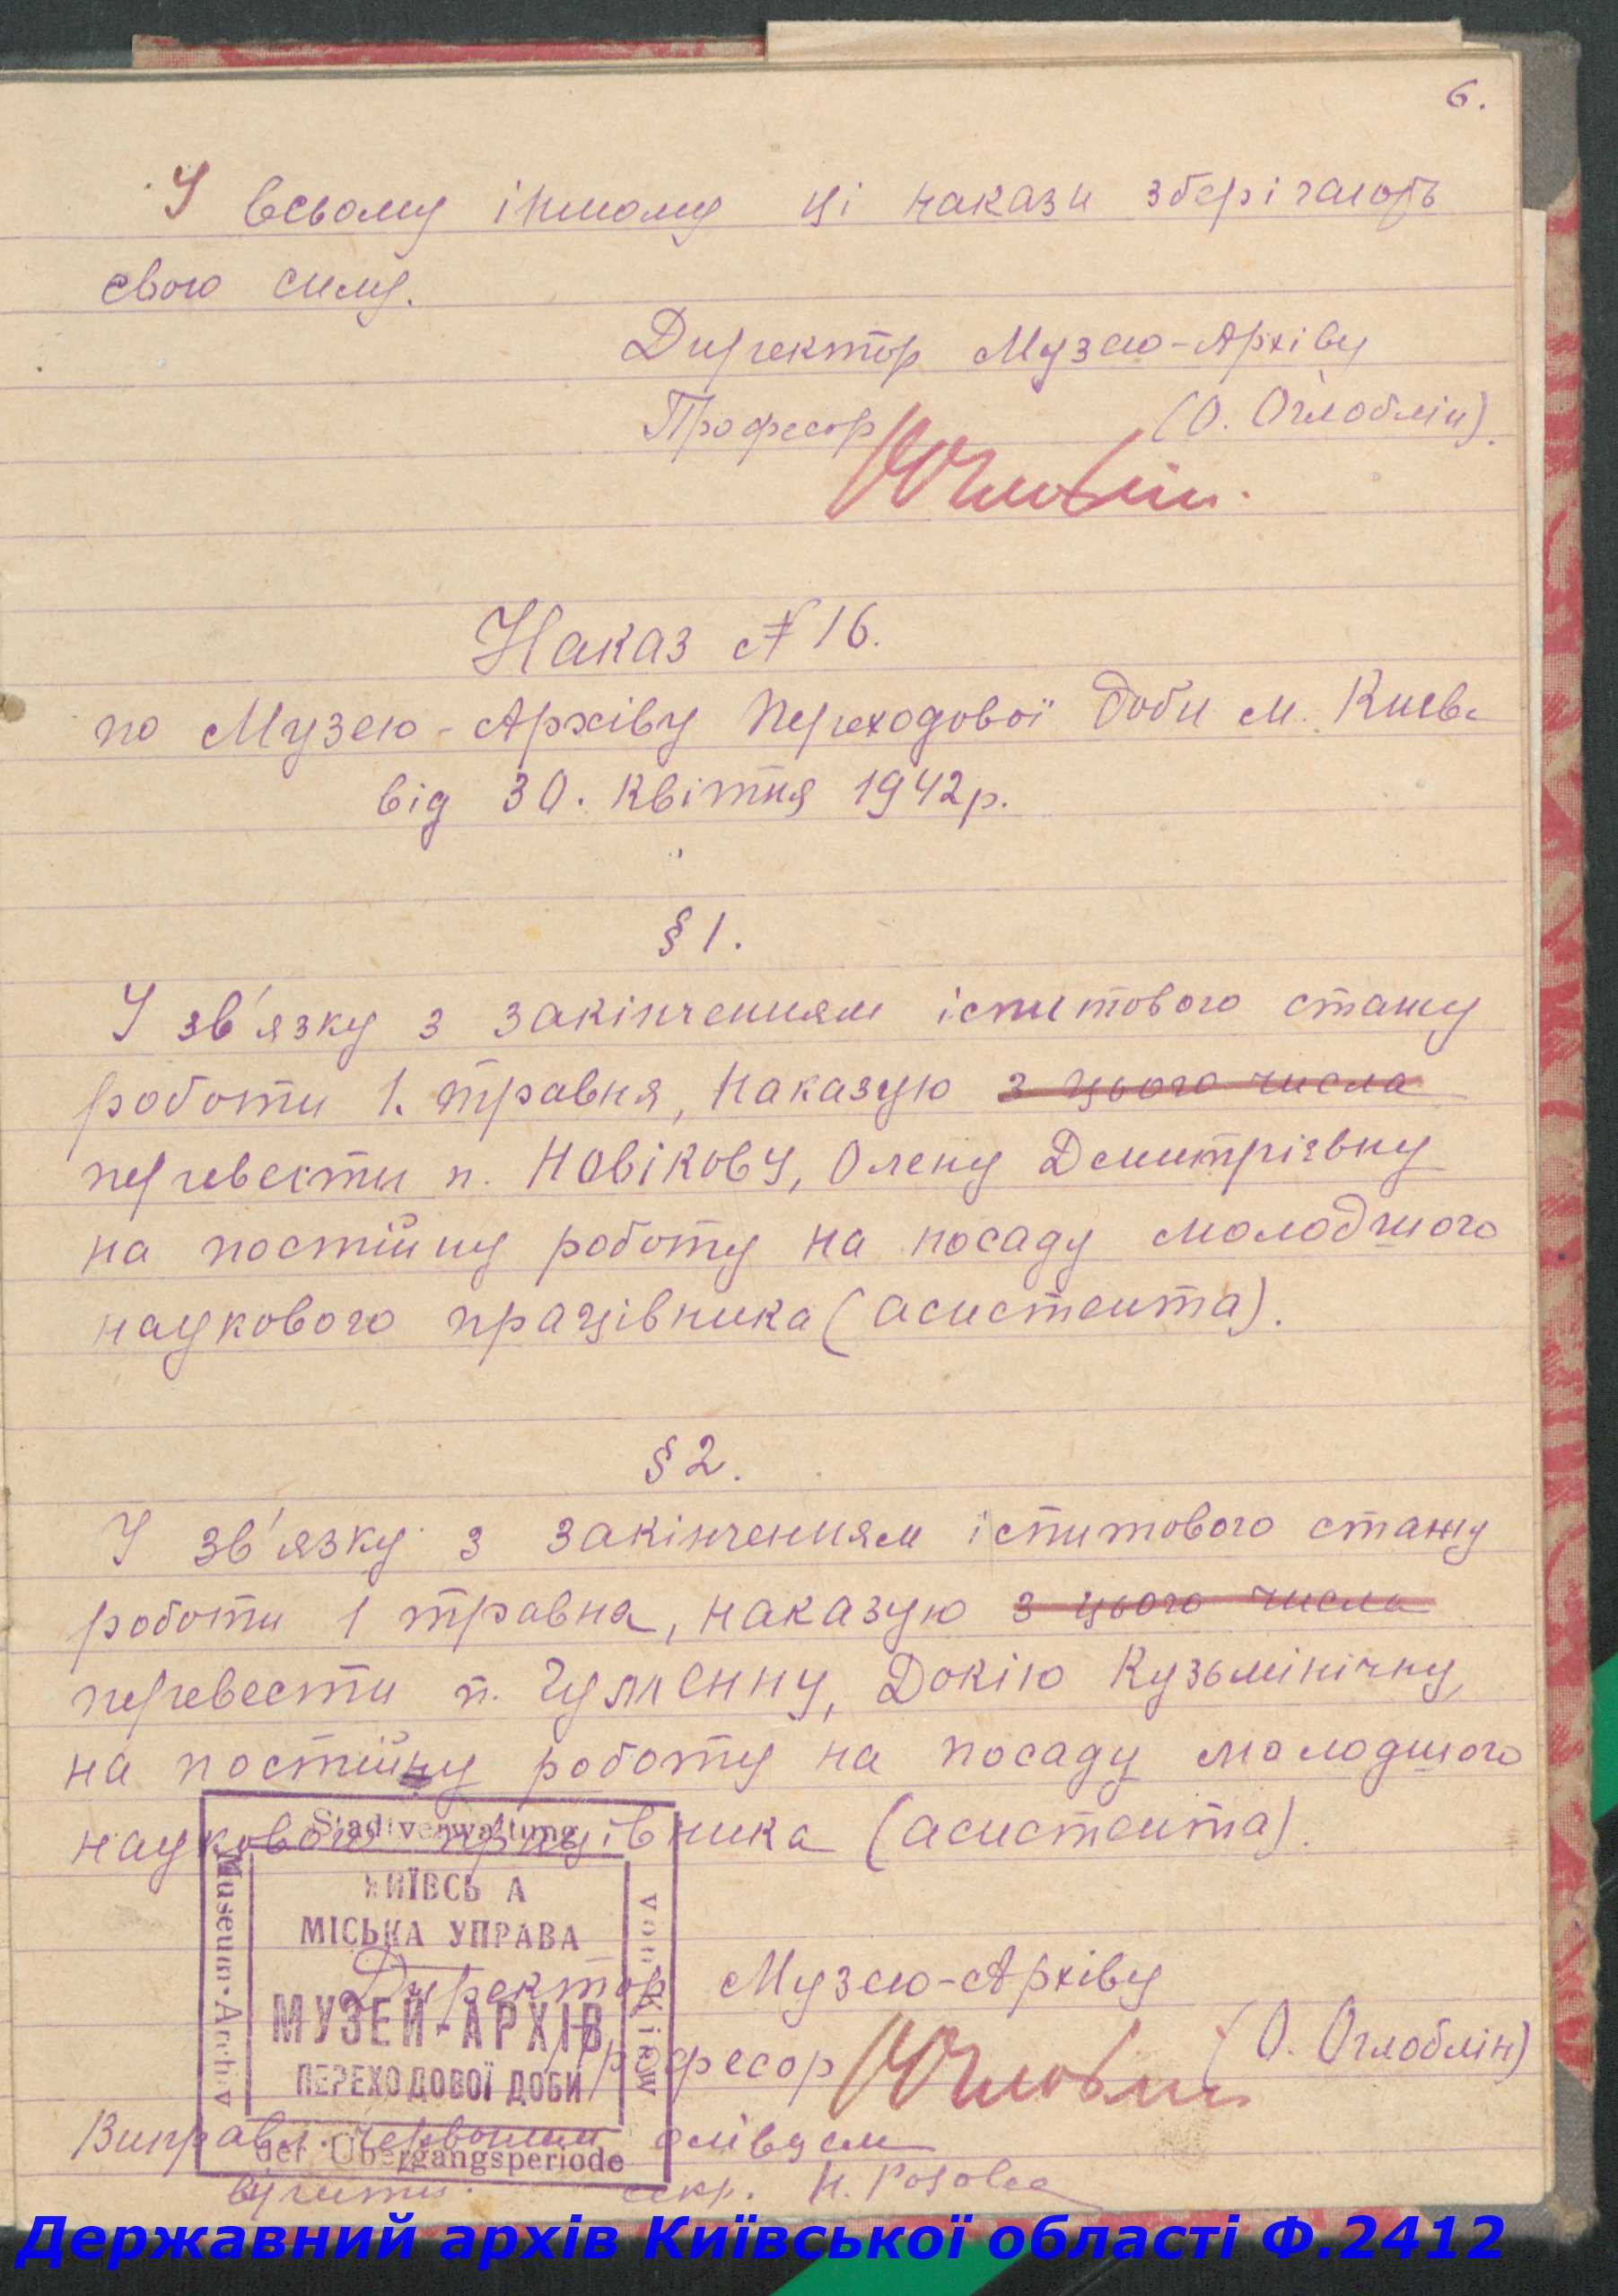 6.
У всьому іншому ці накази зберігають
свою силу.
Директор Музею-Архіву
Професор (О. Оглоблін).
Наказ № 16.
по Музею-Архіву Переходової Доби м. Києва
від 30. квітня 1942р.
§ 1.
У зв'язку з закінченням іспитового стажу
роботи 1. травня, наказую з цього числа
перевести п. Новікову, Олену Демитрієвну
на постійну роботу на посаду молодшого
наукового працівника (асистента).
§ 2.
У зв'язку з закінченням іспитового стажу
роботи 1 травня, наказую з цього числа
перевести п. Докію Кузьмінічну,
на постійну роботу на посаду молодшого
наукового працівника (асистента).
Директор Музею-Архіву
Професор (О. Оглоблін)
червоним олівцем
вірити. секр. Н.
Stadtverwaltung
Museum-Archiv
КИЇВСЬ А
МІСЬКА УПРАВА
МУЗЕЙ-АРХІВ
ПЕРЕХОДОВОЇ ДОБИ
von Kiew
der Übergangsperiode
Державний архів Київської області Ф.2412